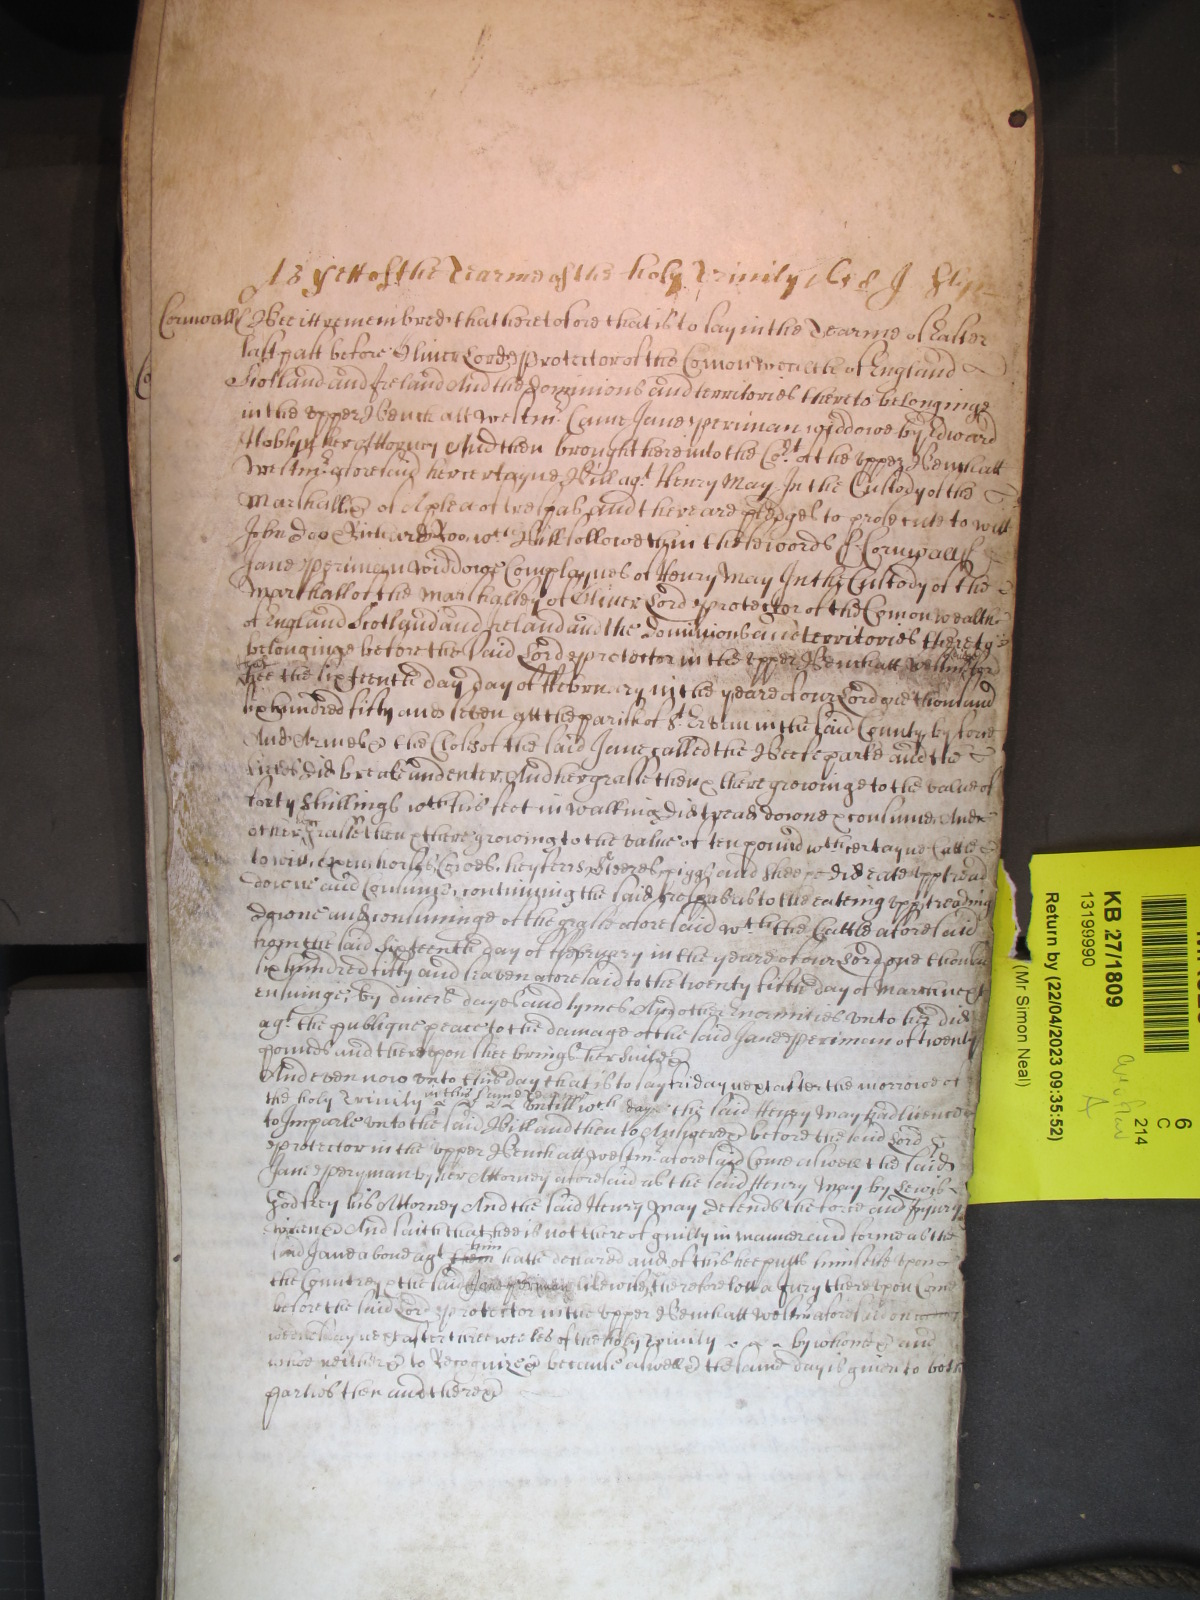 As yett of the Tearme of the holy Trinity
Cornwall Bee itt remembred that heretofore that is to say in the Tearme of Easter
last past before Oliver Lord Protector of the Comonwealth of England
Scotland and Ireland And the Dominions and territories thereto belonginge
in the upper Bench att Westmr. Came Jane Periman widdowe by Edward
Hoblyn her Attorney And then brought here into the Cort. of the upper Bench att
Westmr. aforesaid here certayne Bill agt. Henry May In the Custody of the
Marshall &c of A plea of trespas and there are pledges to prosecute to witt
John Doo Richard Roo wch. Bill followeth in these words ss. Cornwall ss.
Jane Periman widdowe Complaynes of Henry May In the Custody of the
Marshall of the Marshalsey of Oliver Lord Protector of the Comonwealth
of England Scotland and Ireland and the Dominions and territories thereto
belonginge before the said Lord Protector in the upper Bench att Westminster
hee the sixteenth day day of February in the yeare of our Lord one thousand
six hundred fifty and seven att the parish of St. Ervan in the said County by force
And Armes &c the Close of the said Jane called the Beefe parke and the
did breake and enter And her grasse then & there growinge to the value of
forty shillings wth his feet in walking did tread downe & consume And
other grasse then & there growing to the value of ten pound wth. certayne Cattle
to witt, Oxen horses, Cowes, heyfers, Steeres, piggs and sheepe did eate upp tread
downe and Consume, continuing the said trespas as to the eateing upp treading
downe and consuminge of the grasse aforesaid wth. the Cattle aforesaid
from the said sixteenth day of February in the yeare of our Lord one thousand
six hundred fifty and seaven aforesaid to the twenty fifth day of March next
ensuinge, by divers dayes and tymes And other Enormities unto her did
agt. the publique peace to the damage of the said Jane Periman of twenty
pounds and thereupon shee brings her suite &c
And even now unto this day that is to say Friday next after the morrowe of
the holy Trinity in this same Tearme untill wch. day the said Henry May had licence
to Imparle unto the said Bill and then to Answere &c before the said Lord
Protector in the upper Bench att Westmr. aforesaid Come aswell the said
Jane Peryman by her Attorney aforesaid as the said Henry May by Lewis
Godfrey his Attorney And the said Henry May Defends the force and Injury
when &c And saith that hee is not thereof guilty in manner and forme as the
said Jane above agt. him hath declared and of this hee putts himselfe upon
the Countrey & the said Jane Periman likewise, therefore lett a Jury thereupon Come
before the said Lord Protector in the upper Bench att Westmr aforesaid on
wednesday next after three weekes of the holy Trinity by whome &c and
whoe neither &c to Recognize &c because aswell &c the same day is given to both
parties then and there &c
KB 27/1809
13199990
Return by (22/04/2023 09:35:52)
(Mr Simon Neal)
6
C
214